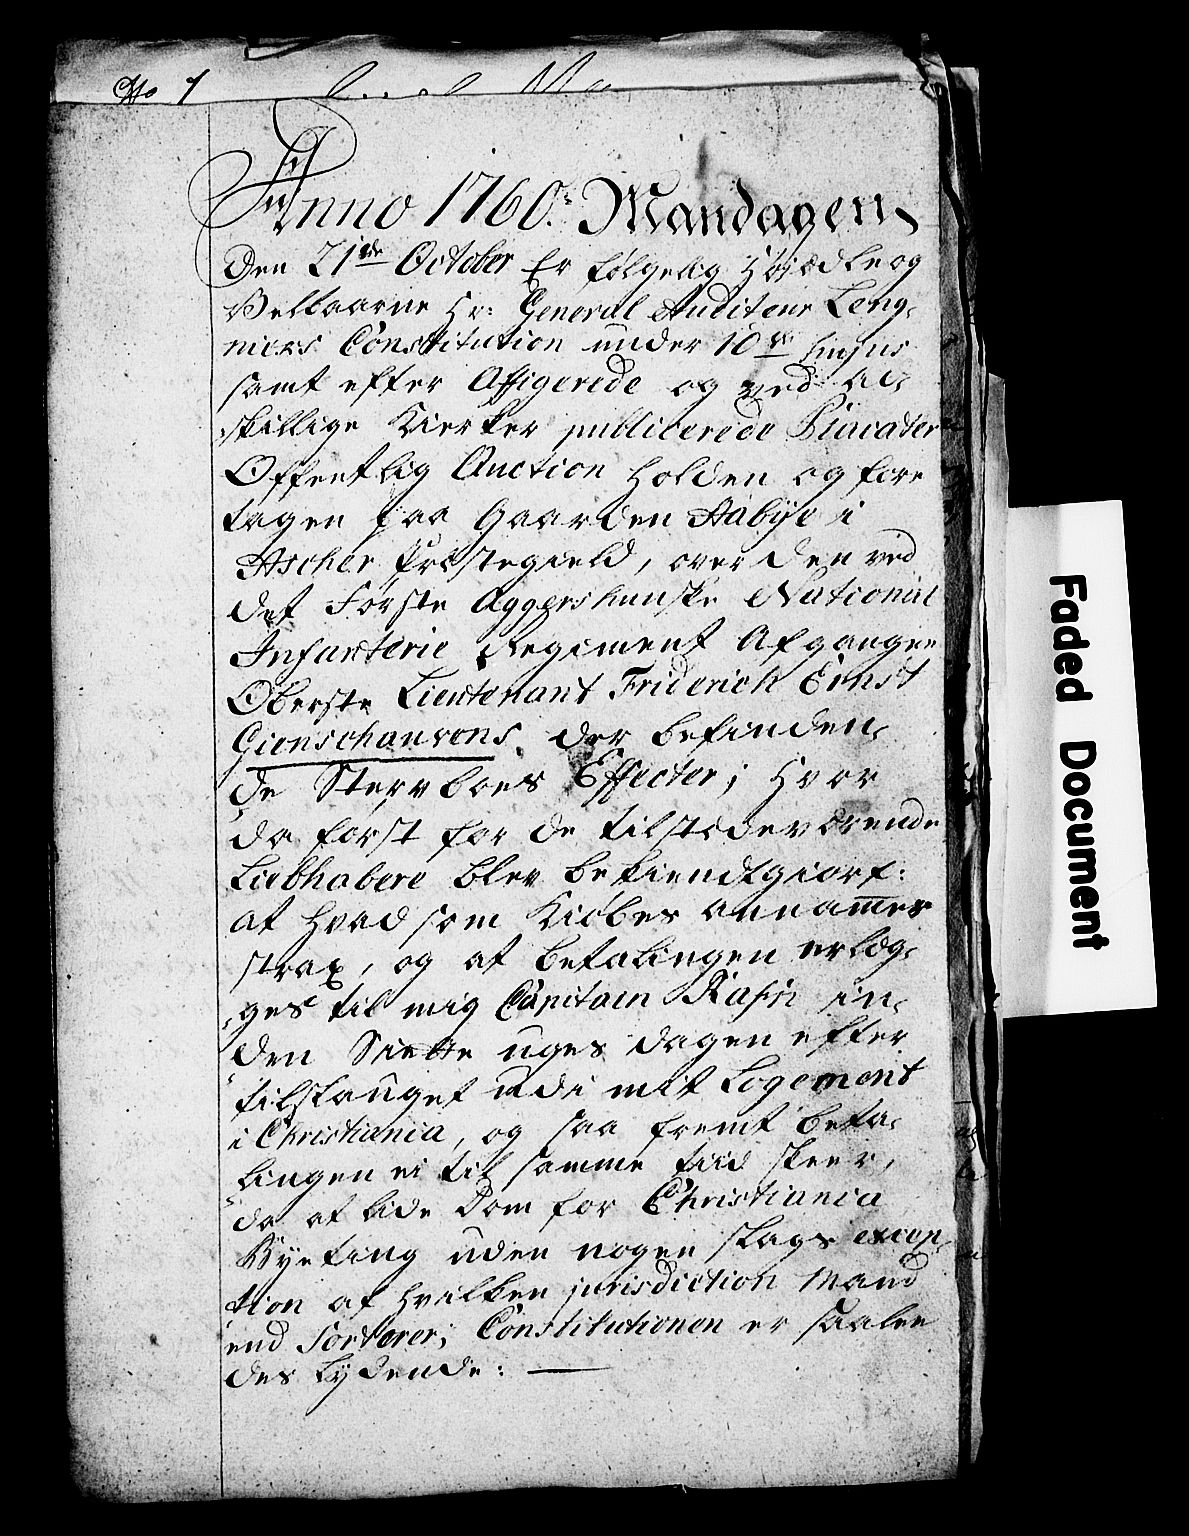 No 7
Anno 1760. Mandagen
Den 21de October Er følgelig Høyædle og
Velbaarne Hr: General Auditeur Leng-
niers Constitution under 10de hujus
samt efter Affigerede og ved ad-
skillige Kierker publicerede Placater
Offentlig Auction holden og fore
tagen paa Gaarden Aabye i
Ascher Præstegield, over den ved
det Første Aggershuuske National
Infanterie Regiment Afgangen
Oberste Lieutenant Friderich Ernst
Gienschouvons der befinden-
de Sterfboes Effecter; Hvor
da først for de tilstedeværende
Liebhabere blev bekiendtgiort:
at hvad som Kiøbes annammes
strax, og at betalingen erlæg-
ges til mig Capitain Rafn in-
den Siette uges dagen efter
tilslauget udi mit Logement
i Christiania, og saa fremt beta-
lingen ei til samme tiid skeer,
da at lide Dom for Christiania
Byeting uden nogen slags excep-
tion af hvilken jurisdiction Mand
end Sorterer; Constitutionen er saalen
des Lydende:
Faded Document